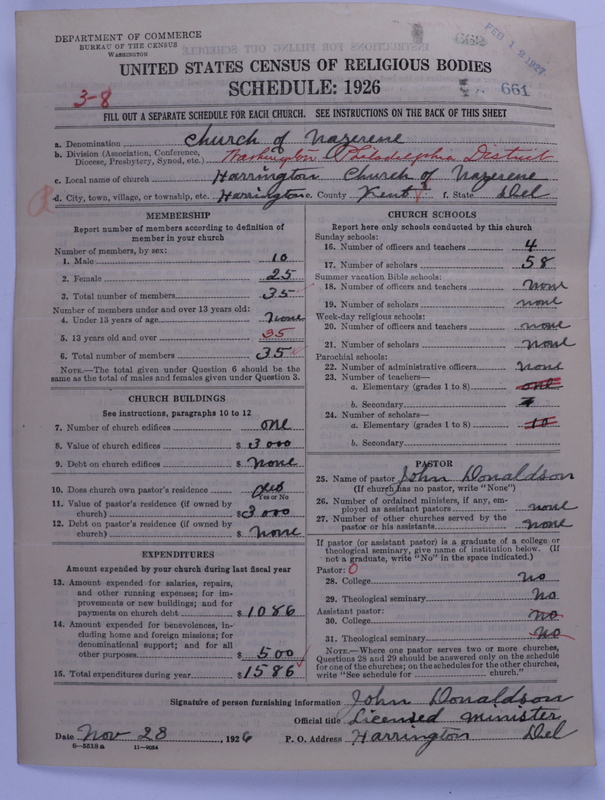 DEPARTMENT OF COMMERCE
BUREAU OF THE CENSUS
WASHINGTON
FEB 12 1927
UNITED STATES CENSUS OF RELIGIOUS BODIES
SCHEDULE: 1926
3-8
661
FILL OUT A SEPARATE SCHEDULE FOR EACH CHURCH. SEE INSTRUCTIONS ON THE BACK OF THIS SHEET
a. Denomination Church of Nazerene
b. Division (Association, Conference, Diocese, Presbytery, Synod, etc.) Washington Philadelphia District
c. Local name of church Harrington Church of Nazerene
d. City, town, village, or township, etc. Harrington e. County Kent f. State Del
MEMBERSHIP
Report number of members according to definition of
member in your church
Number of members, by sex:
1. Male 10
2. Female 25
3. Total number of members 35
Number of members under and over 13 years old:
4. Under 13 years of age none
5. 13 years old and over 35
6. Total number of members 35
NOTE.—The total given under Question 6 should be
same as the total of males and females given under Question 3.
CHURCH BUILDINGS
See instructions, paragraphs 10 to 12
7. Number of church edifices one
8. Value of church edifices $ 3000
9. Debt on church edifices $ none
10. Does church own pastor's residence yes
Yes or No
11. Value of pastor's residence (if owned by
church) $ 3000
12. Debt on pastor's residence (if owned by
church) $ none
EXPENDITURES
Amount expended by your church during last fiscal year
13. Amount expended for salaries, repairs,
and other running expenses; for im-
provements or new buildings; and for
payments on church debt $ 1086
14. Amount expended for benevolences, in-
cluding home and foreign missions; for
denominational support; and for all
other purposes $ 500
15. Total expenditures during year $ 1586
CHURCH SCHOOLS
Report here only schools conducted by this church
Sunday schools:
16. Number of officers and teachers 4
17. Number of scholars 58
Summer vacation Bible schools:
18. Number of officers and teachers none
19. Number of scholars none
Week-day religious schools:
20. Number of officers and teachers none
21. Number of scholars none
Parochial schools:
22. Number of administrative officers none
23. Number of teachers—
a. Elementary (grades 1 to 8) one
b. Secondary
24. Number of scholars—
a. Elementary (grades 1 to 8) 10
b. Secondary
PASTOR
25. Name of pastor John Donaldson
(If church has no pastor, write "None")
26. Number of ordained ministers, if any, em-
ployed as assistant pastors none
27. Number of other churches served by the
pastor or his assistants none
If pastor (or assistant pastor) is a graduate of a college or
theological seminary, give name of institution below. (If
not a graduate, write "No" in the space indicated.)
Pastor: 0
28. College no
29. Theological seminary No
Assistant pastor:
30. College no
31. Theological seminary No
NOTE.—Where one pastor serves two or more churches,
Questions 28 and 29 should be answered only on the schedule
for one of the churches; on the schedules for the other churches,
write "See schedule for church."
Signature of person furnishing information John Donaldson
Official title Licensed minister
Date Nov 28, 1926 P. O. Address Harrington Del
6—5518a 11—9034